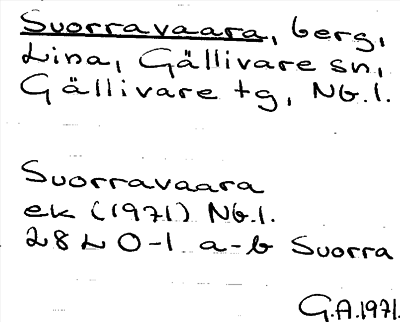 Suorravaara, berg,
Lina, Gällivare sn,
Gällivare tg, Nb.l.
Suorravaara
ek (1971) Nb.l.
28 L 0-1 a-b Suorra
G.A.1971.